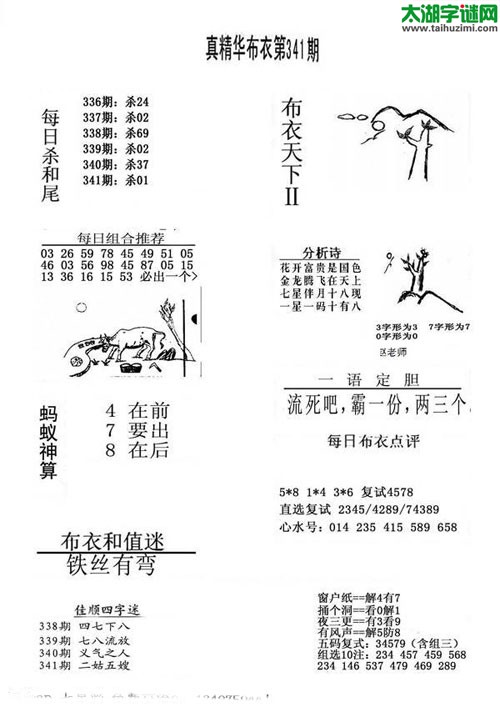 太湖字谜网
www.taihuzimi.com
真精华布衣第341期
每日杀和尾
336期：杀24
337期：杀02
338期：杀69
339期：杀02
340期：杀37
341期：杀01
布衣天下II
每日组合推荐
03 26 59 78 45 49 51 05
46 03 56 98 45 87 05 15
13 36 16 15 53 必出一个>
分析诗
花开富贵是国色
金龙腾飞在天上
七星伴月十八现
一星一码十有八
3字形为3 7字形为7
0字形为0
赵老师
蚂蚁神算
4 在前
7 要出
8 在后
一语定胆
流死吧，霸一份，两三个.
每日布衣点评
5*8 1*4 3*6 复试4578
直选复试 2345/4289/74389
心水号：014 235 415 589 658
布衣和值迷
铁丝有弯
佳顺四字迷
338期 四七下八
339期 七八流放
340期 义气之人
341期 二姑五嫂
窗户纸==解4有7
捅个洞==看0解1
夜三更==有3看9
有风声==解5防8
五码复式：34579（含组三）
组选10注：234 457 459 568
234 146 537 479 469 289